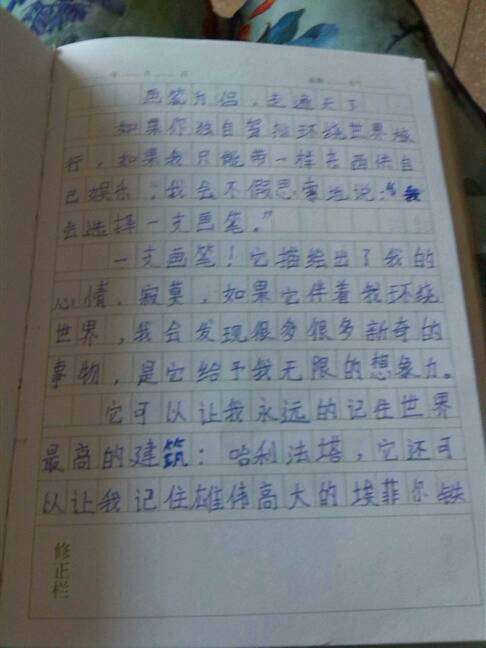 画笔为侣，走遍天下
如果你独自驾船环绕世界旅
行，如果我只能带一样东西供自
己娱乐，我会不假思索地说：“我
会选择一支画笔。”
一支画笔！它描绘出了我的
心情，寂寞，如果它伴着我环绕
世界，我会发现很多很多新奇的
事物，是它给予我无限的想象力。
它可以让我永远的记住世界
最高的建筑：哈利法塔，它还可
以让我记住雄伟高大的埃菲尔铁
修正栏